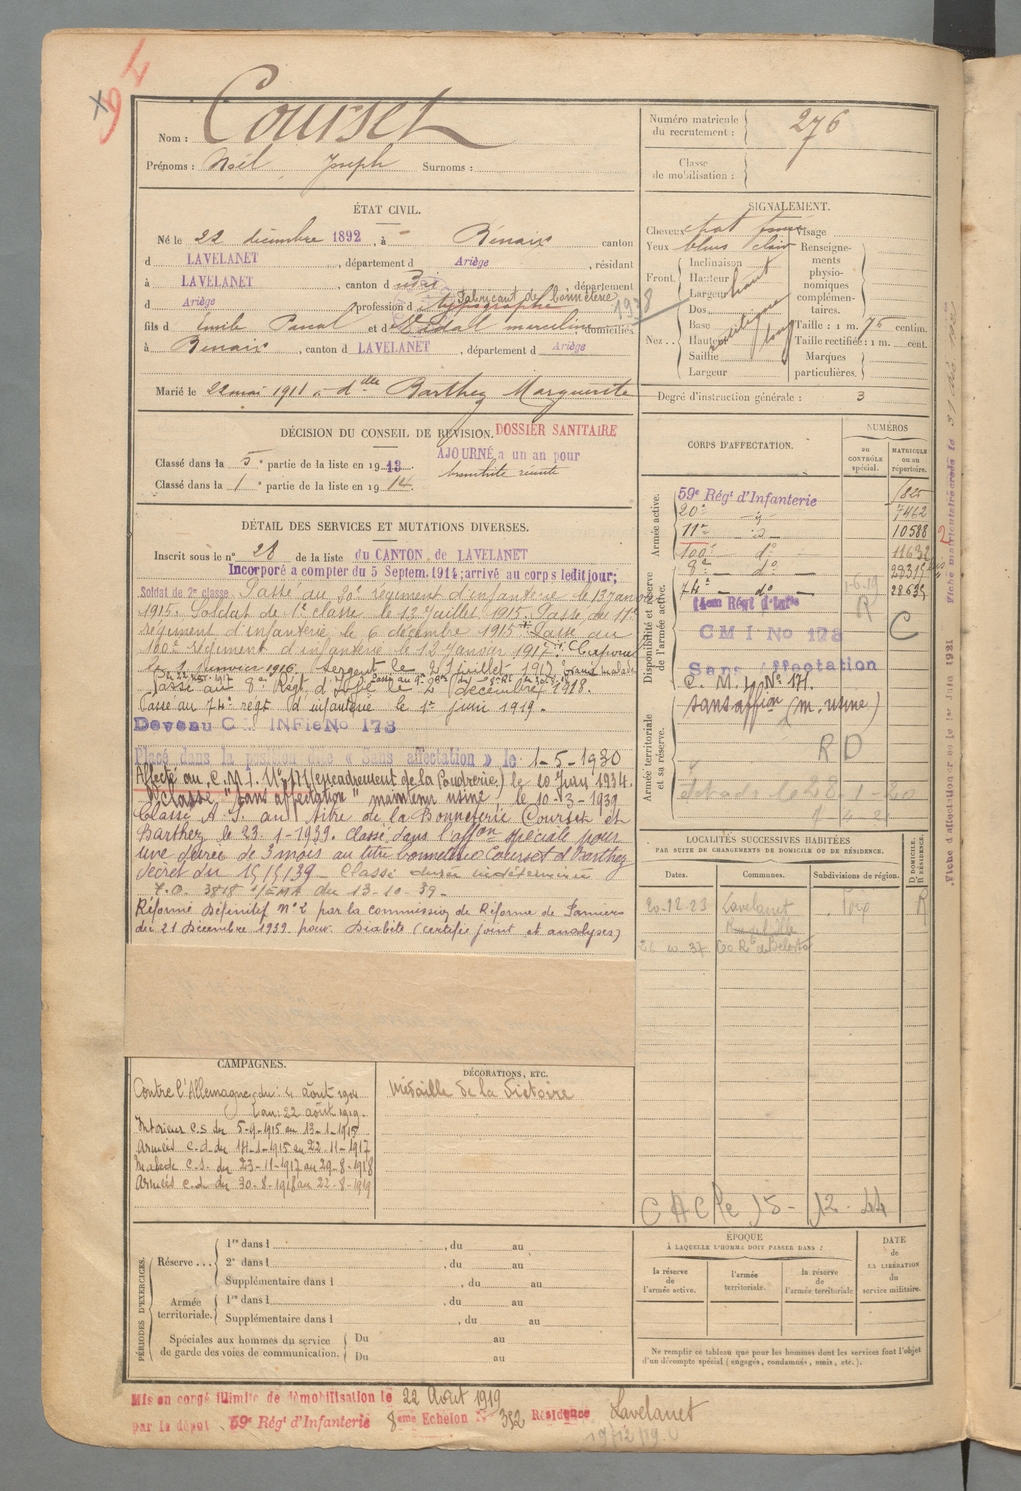 94
Nom : Courset
Prénoms : Noël Joseph Surnoms :
Numéro matricule du recrutement : 276
Classe de mobilisation :
ÉTAT CIVIL.
Né le 22 décembre 1892, à Bénaix canton
d LAVELANET, département d Ariège, résidant
à LAVELANET, canton d , département
d Ariège profession d typographe Fabricant de bonneterie 1938
fils d Émile Pascal et d Vidal domiciliés
à Benaix, canton d LAVELANET, département d Ariège
Marié le 22 mai 1911 à dlle Barthez Marguerite
SIGNALEMENT.
Cheveux chat foncé Visage
Yeux bleus clair Renseignements physionomiques complémentaires.
Front. Inclinaison
Hauteur haut
Largeur
Nez Dos rectiligne
Base
Hauteur long
Saillie
Largeur
Taille : 1 m. 75 centim.
Taille rectifiée : 1 m. cent.
Marques particulières.
Degré d'instruction générale : 3
DÉCISION DU CONSEIL DE RÉVISION. DOSSIER SANITAIRE
AJOURNÉ a un an pour
Classé dans la 5e partie de la liste en 1913
Classé dans la 1e partie de la liste en 1914
DÉTAIL DES SERVICES ET MUTATIONS DIVERSES.
Inscrit sous le n° 28 de la liste du CANTON de LAVELANET
Incorporé a compter du 5 Septem. 1914; arrivé au corps ledit jour;
Soldat de 2e classe Passé au 20e régiment d'infanterie le 13 janvier
1915. Soldat de 1e classe le 12 juillet 1915. Passé au 11e
régiment d'infanterie le 6 décembre 1915 Passé au
100e régiment d'infanterie le 12 Janvier 1917. Caporal
le 1 janvier 1916. Sergent le 21 juillet 1917
Passé au 8e Régt d'Infie le 2 décembre 1918.
Passé au 74e régt d'infanterie le 1er juin 1919.
Devenu C M INFie No 173
Placé dans la position dite « Sans affectation » le 1-5-1930
Affecté au C.M.I. No 171 (encadrement de la Poudrerie) le 10 Juin 1934.
Classé "sans affectation" maintenu usine, le 10-3-1939
Classé A.S. au titre de la Bonneterie Courset et
Barthez le 23-1-1939. Classé dans l'affon spéciale pour
une durée de 3 mois au titre bonneterie Courset et Barthez
Classé durée indéterminée
3818 du 13-10-39.
Réformé définitif n°2 par la commission de Réforme de Pamiers
du 21 Décembre 1939 pour Diabète (certifié joint et analyses)
CORPS D'AFFECTATION.
NUMÉROS
AU CONTRÔLE spécial.
MATRICULE ou au répertoire.
Armée active.
59e Régt d'Infanterie 1825
20e d° 7462
11e d° 10588
Disponibilité et réserve de l'armée active.
100e d° 11632
8e d°
74e d° 1-6-19 28635
14em Régt d'Infie R
CMI No 173 C
Sans Affectation
C. M. I. No 171.
Armée territoriale et sa réserve.
(sans affion (m. usine)
RD
LOCALITÉS SUCCESSIVES HABITÉES
PAR SUITE DE CHANGEMENTS DE DOMICILE OU DE RÉSIDENCE.
Dates. Communes. Subdivisions de région. D DOMICILE. R RÉSIDENCE.
20-12-23 Lavelanet Foix R
26 10 37
CAMPAGNES.
Contre l'Allemagne du : 4 août 1914
au : 22 août 1919.
Intérieur C.S. du 5-9-1915 au 13-1-1915
Armées C.d. du 14-1-1915 au 22-11-1917
Malade C.S. du 23-11-1917 au 29-8-1918
Armées C.d. du 30-8-1918 au 22-8-1919
DÉCORATIONS, ETC.
Médaille de la Victoire
PÉRIODES D'EXERCICES.
Réserve... 1re dans l , du au
2e dans l , du au
Supplémentaire dans l , du au
Armée territoriale. 1re dans l , du au
Supplémentaire dans l , du au
Spéciales aux hommes du service de garde des voies de communication. Du au
Du au
ÉPOQUE
À LAQUELLE L'HOMME DOIT PASSER DANS :
la réserve de l'armée active.
l'armée territoriale.
la réserve de l'armée territoriale
DATE de LA LIBÉRATION du service militaire.
Ne remplir ce tableau que pour les hommes dont les services font l'objet
d'un décompte spécial (engagés, condamnés, omis, etc.).
Mis en congé illimité de démobilisation le 22 Août 1919
par le dépôt 59e Régt d'Infanterie 8eme Echelon N° 382 Résidence Lavelanet